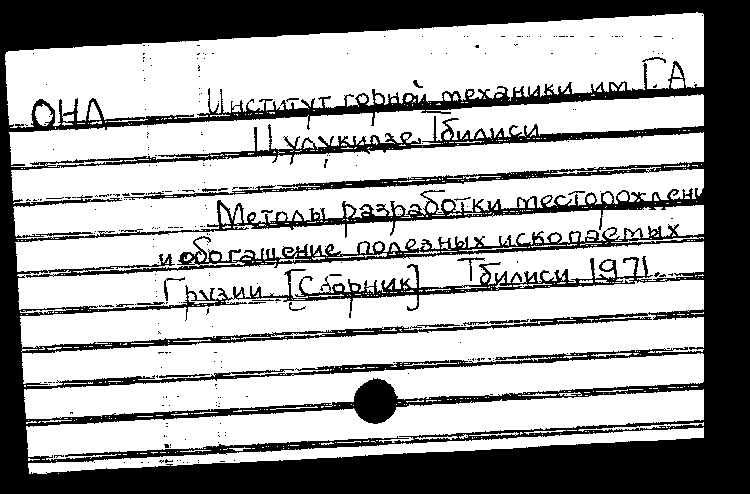 ОНЛ Институт горной механики им. Г.А.
Цулукидзе. Тбилиси
Методы разработки месторождени
и обогащение полезных ископаемых
Грузии. [Сборник]. Тбилиси, 1971.